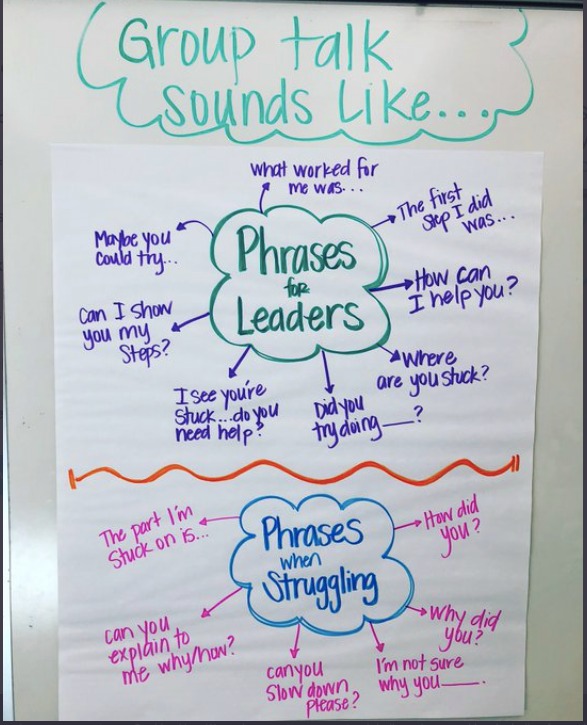 Group talk
sounds like...
what worked for
me was...
The first
step I did
was...
How can
I help you?
Where
are you stuck?
Did you
try doing ____?
I see you're
stuck...do you
need help?
Can I show
you my
steps?
Maybe you
could try...
Phrases
for
Leaders
Phrases
when
Struggling
The part I'm
stuck on is...
How did
you?
Why did
you?
I'm not sure
why you____.
can you
slow down
please?
can you
explain to
me why/how?